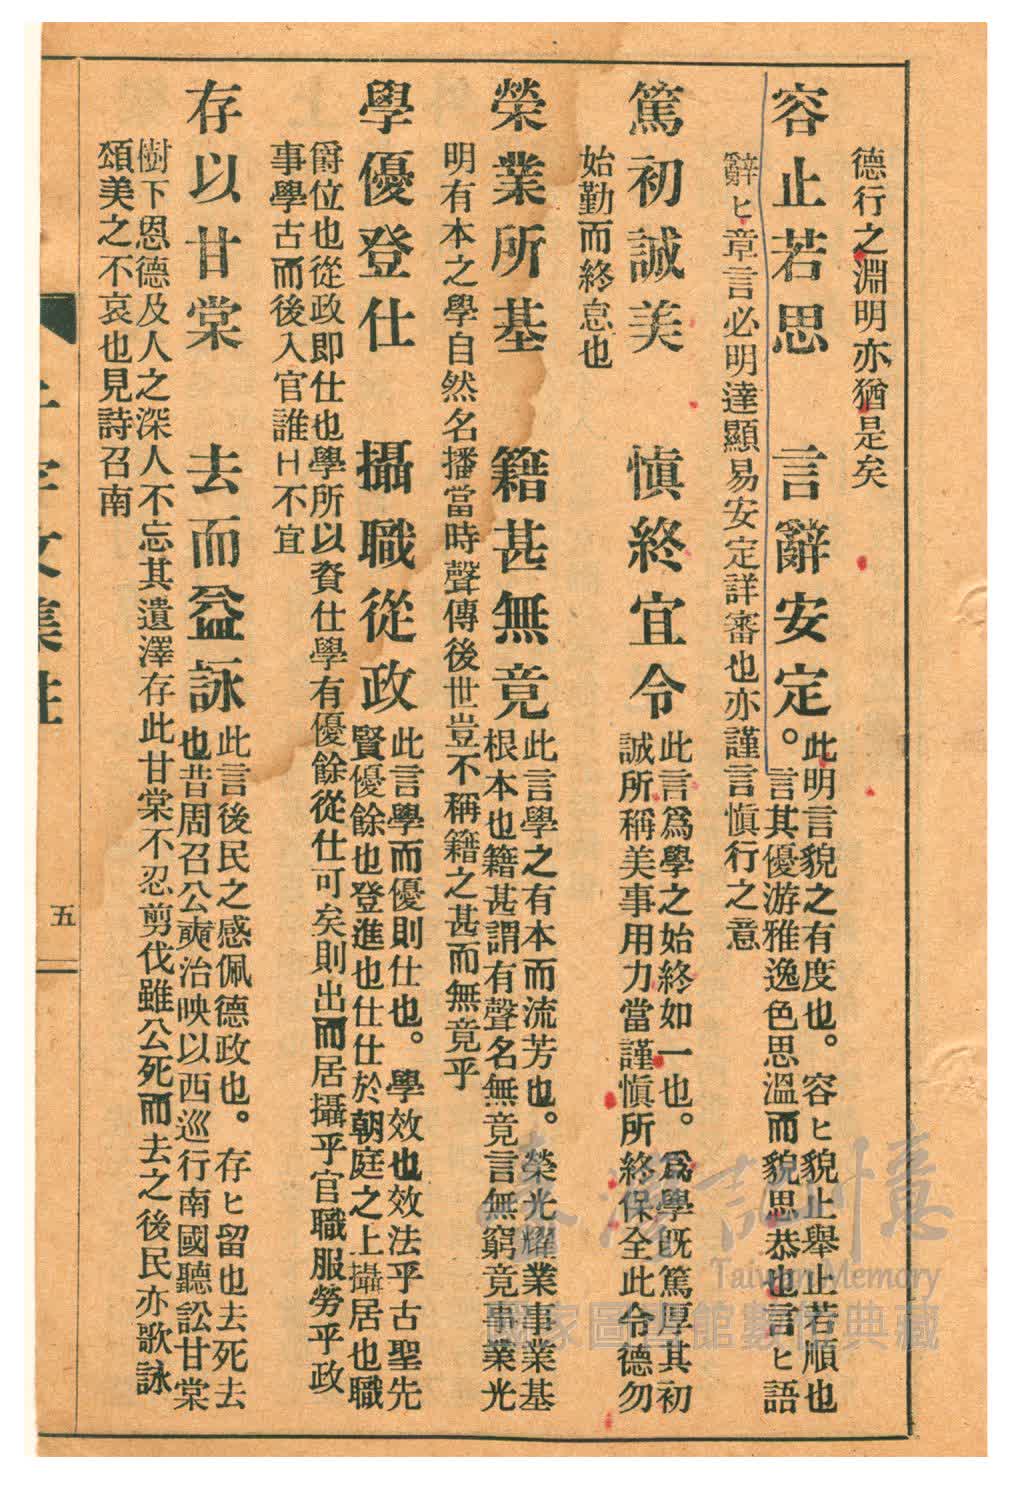 德行之淵明亦猶是矣
容止若思　言辭安定。
此明言貌之有度也。容ヒ貌止舉止若順也
言其優游雅逸色思溫而貌思恭也言ヒ語
辭ヒ章言必明達顯易安定詳審也亦謹言愼行之意
篤初誠美　愼終宜令
此言爲學之始終如一也。爲學旣篤厚其初
誠所稱美事用力當謹愼所終保全此令德勿
始勤而終怠也
榮業所基　籍甚無竟
此言學之有本而流芳也。榮光耀業事業基
根本也籍甚謂有聲名無竟言無窮竟事業光
明有本之學自然名播當時聲傳後世豈不稱籍之甚而無竟乎
學優登仕　攝職從政
此言學而優則仕也。學效也效法乎古聖先
賢優餘也登進也仕仕於朝庭之上攝居也職
爵位也從政即仕也學所以資仕學有優餘從仕可矣則出而居攝乎官職服勞乎政
事學古而後入官誰曰不宜
存以甘棠　去而益詠
此言後民之感佩德政也。存ヒ留也去死去
也昔周召公奭治映以西巡行南國聽訟甘棠
樹下恩德及人之深人不忘其遺澤存此甘棠不忍剪伐雖公死而去之後民亦歌詠
頌美之不哀也見詩召南
千字文集註
五
臺灣記憶
Taiwan Memory
國家圖書館數位典藏